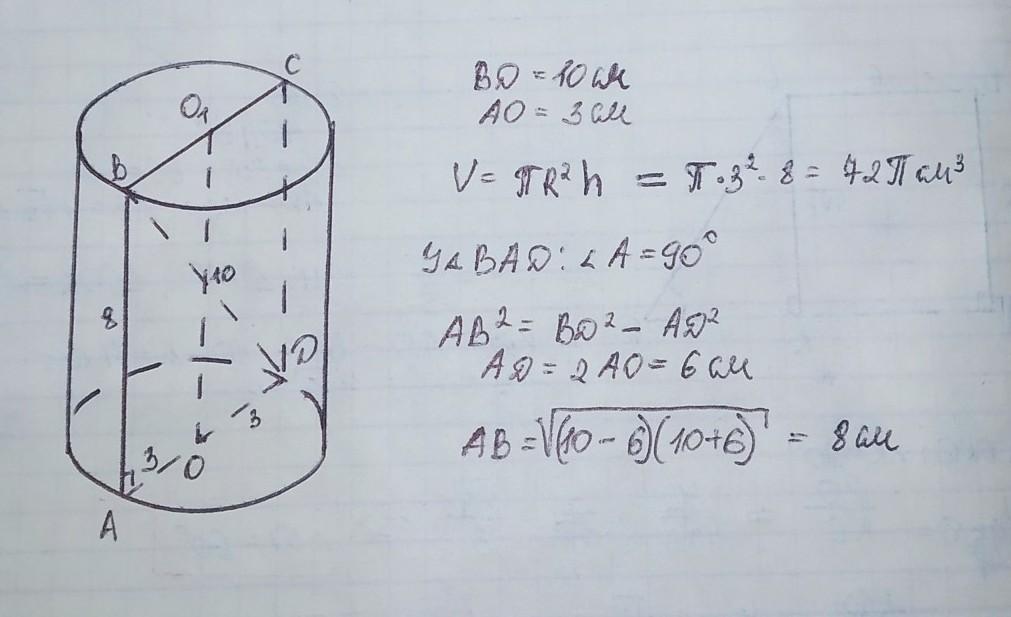 C
O₁
B
10
8
D
3
3
O
A
BD = 10 см
AO = 3 см
V = πR²h = π·3²·8 = 72π см³
У △ BAD: ∠A = 90°
AB² = BD² − AD²
AD = 2AO = 6 см
AB = √(10−6)(10+6) = 8 см